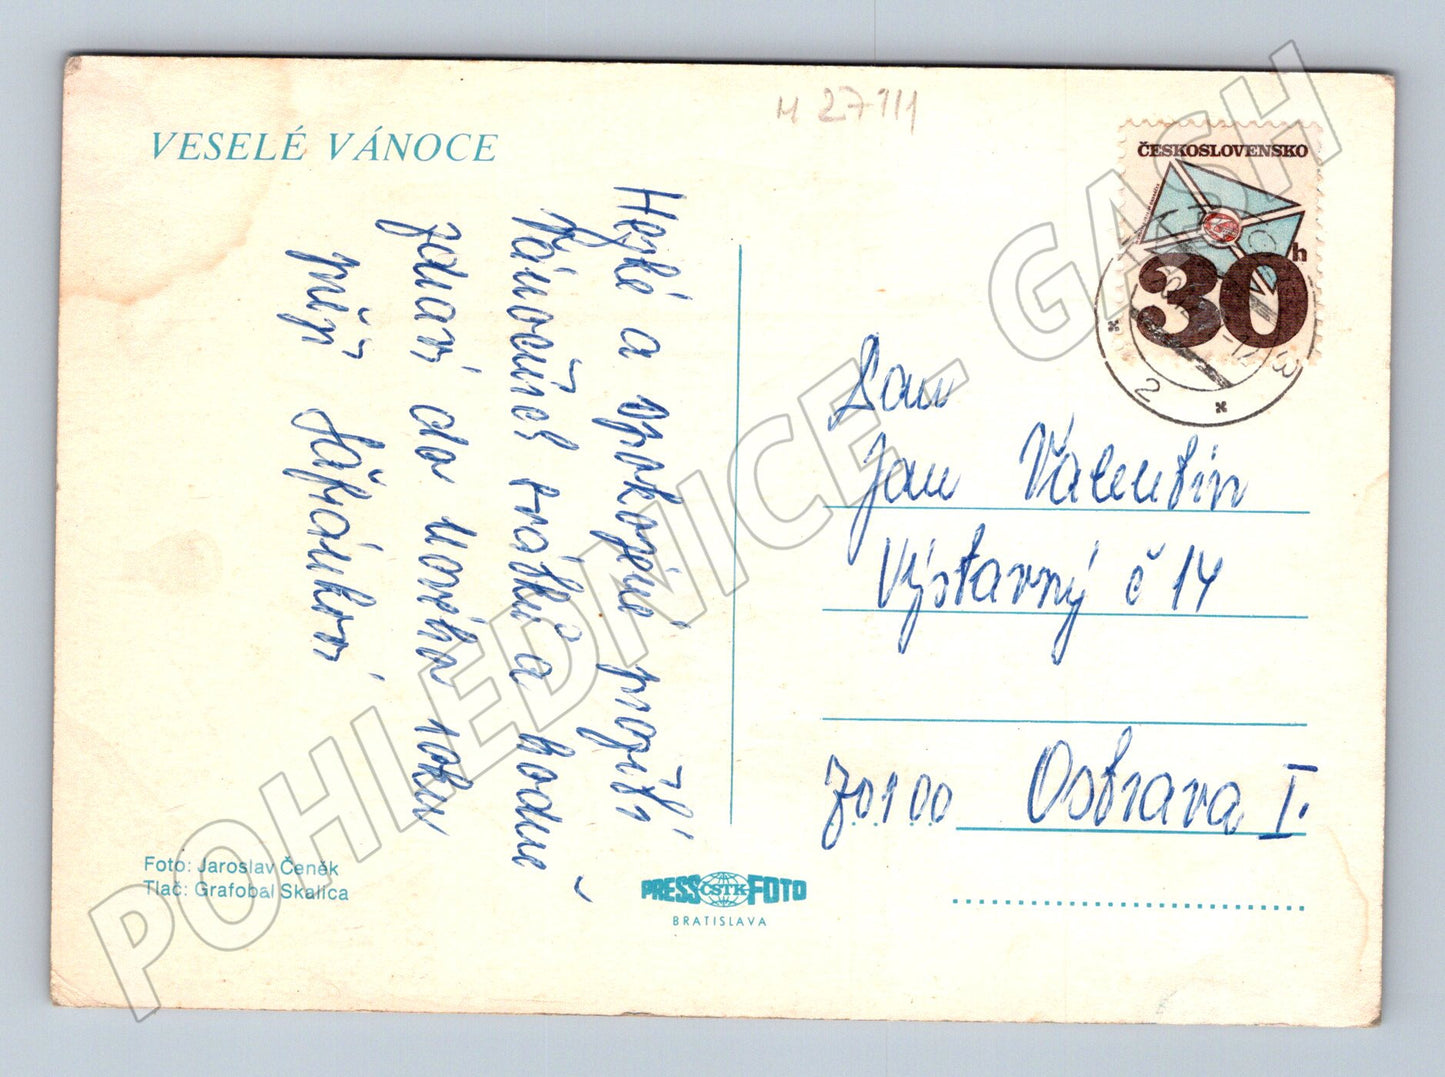 VESELÉ VÁNOCE
M 27111
ČESKOSLOVENSKO
30h
Hezké a spokojené prožití
Vánočních svátků a hodně
zdraví do Nového roku
přejí Šafránkovi
Pan
Jan Valentin
Výstavný č 14
70100 Ostrava I.
Foto: Jaroslav Čeněk
Tlač: Grafobal Skalica
PRESS ČSTK FOTO
BRATISLAVA
POHLEDNICE - GASH